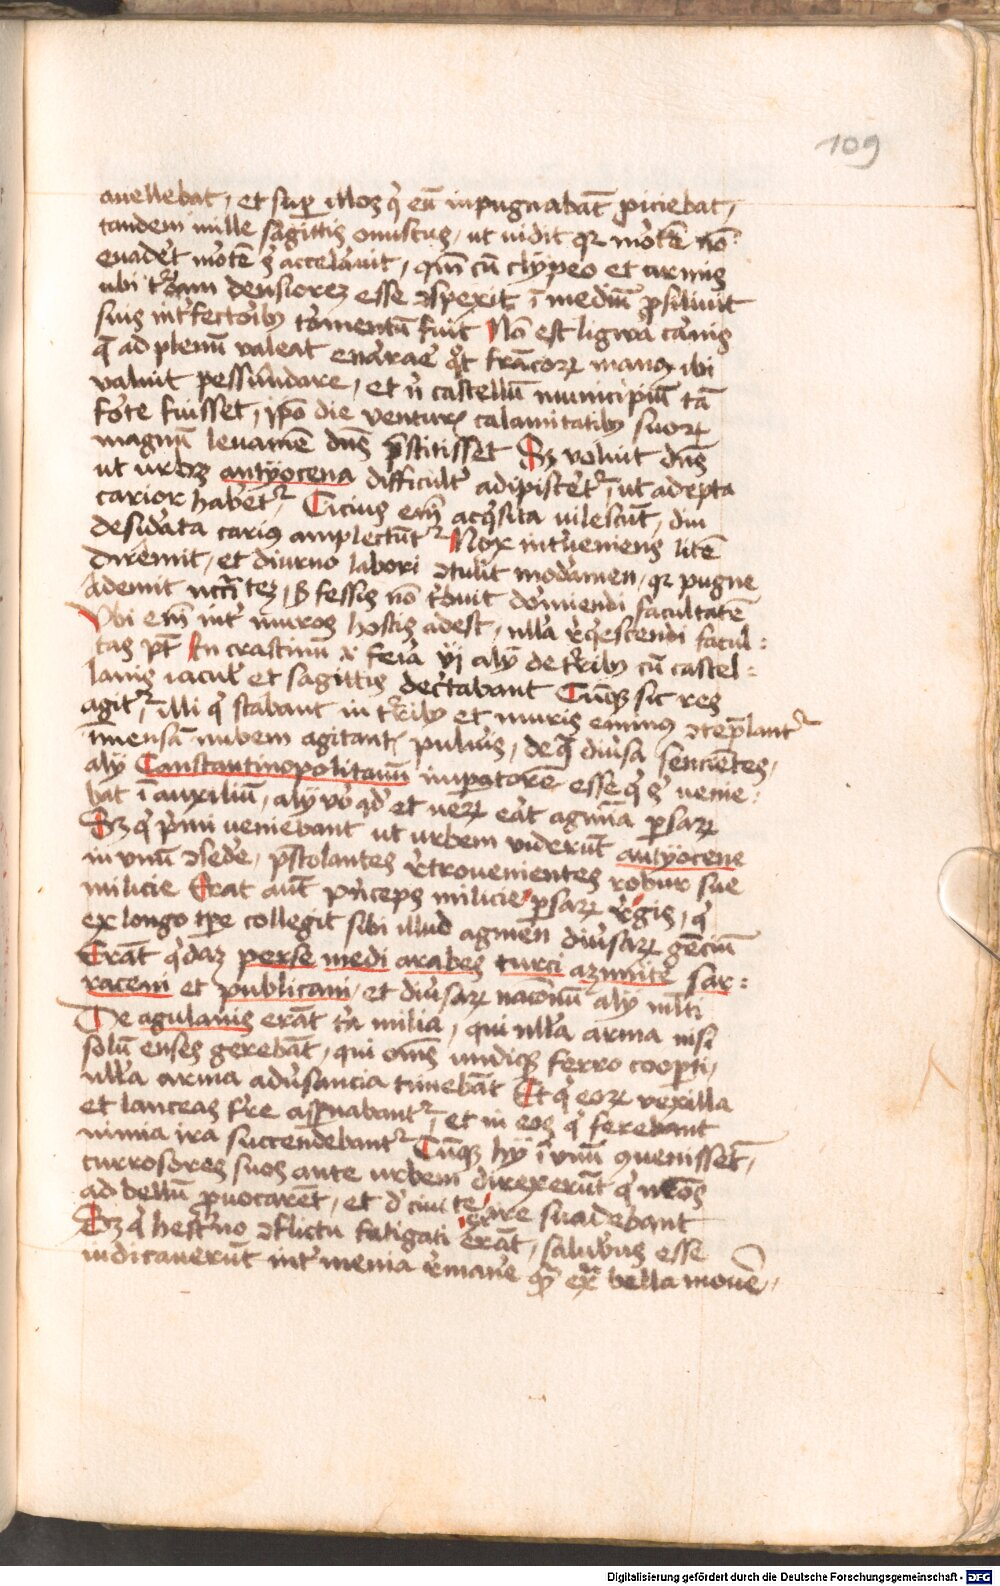 109
auellebat, et sup illos q̇ eū inpugnabāt piciebat,
tandem mille sagittis onustus, ut uidit qr mortē nō
euadet mortē s accelauit, qm̄ cū clypeo et armis
ubi t̉bam densiorez esse ↄspexit ī mediū psiliuit
suis int̉fectorib tormentū fuit Nō est ligwa carnis
q̄ ad plenū valeat enarrare qͥt francoꝝ manꝰ ibi
valuit pessundare, et n̉ castellū municipiū tā
forte fuisset, ip̄o die venturis calamitatibꝰ suoꝝ
magnū leuamē dn̄s p̄stitisset Sꝫ voluit dn̄s
ut urbs antÿocena difficult̉ adipiscet̉, ut adepta
carior habet̉ Cicius em̄ acq̇sita uilescūt, diu
desid̉ata cariꝰ amplectūt̉ Nox int̉ueniens litē
diremit, et diurno labori ↄtulit modamen, qr pugne
ademit fessis nō t̉buit dormiendi facultatē
Vbi em̄ int̉ muros hostis adest, nulla r̉q̇escendi facul:
tas pt̄ In crastinū feria vj alÿ de t̉rib cū castel:
lanis iacul̉ et sagittis dec̉tabant Cūqꝫ sic res
agit̉, illi q̇ stabant in t̉rib et muris eminꝰ ↄtēplant̉
īmensā nubem agitant̉ pulủis, de q̄ diủsa sencientes,
alÿ Constantinopolitanū impatorē esse q̇ s̉ uenie:
bat ī auxiliū, alÿ vo qd̉ et ueꝝ erāt agmīa psaꝝ
Sꝫ q̇ p̉mi ueniebant ut urbem viderūt antÿocene
in vnū ↄsedere, p̄stolantes r̉trouenientes robur sue
milicie Erat aūt p̉nceps milicie psaꝝ r̉gis, q̇
ex longo tp̄e collegit sibi illud agmen diủsaꝝ genciū
Erāt q̇daꝫ perse medi arabes turci azimite sar:
raceni et publicani, et diủsaꝝ nacōnū alÿ ml̄ti
De agulanis erāt t̉a milia, qui null̉a arma nisi
solū enses gerebāt, qui om̄s undiqꝫ ferro coopti,
null̉a arma adủsancia timebāt Et q̇ eoꝝ vexilla
et lanceas fre aspnabant̉, et in eos q̇ ferebant
nimia ira succendebant̉ Cūqꝫ hÿ ī vnū ↄuenissēt,
currosores suos ante urbem direxerūt q̇ nr̄os
ad bellū puocarēt, et d̉ ciuitate exire suadebant
Sꝫ q̇ hest̉no ↄflictu fatigati erāt, salubrius esse
iudicauerūt int̉ menia r̉manere qͣ ext̉ bella mouere,
Digitalisierung gefördert durch die Deutsche Forschungsgemeinschaft - DFG